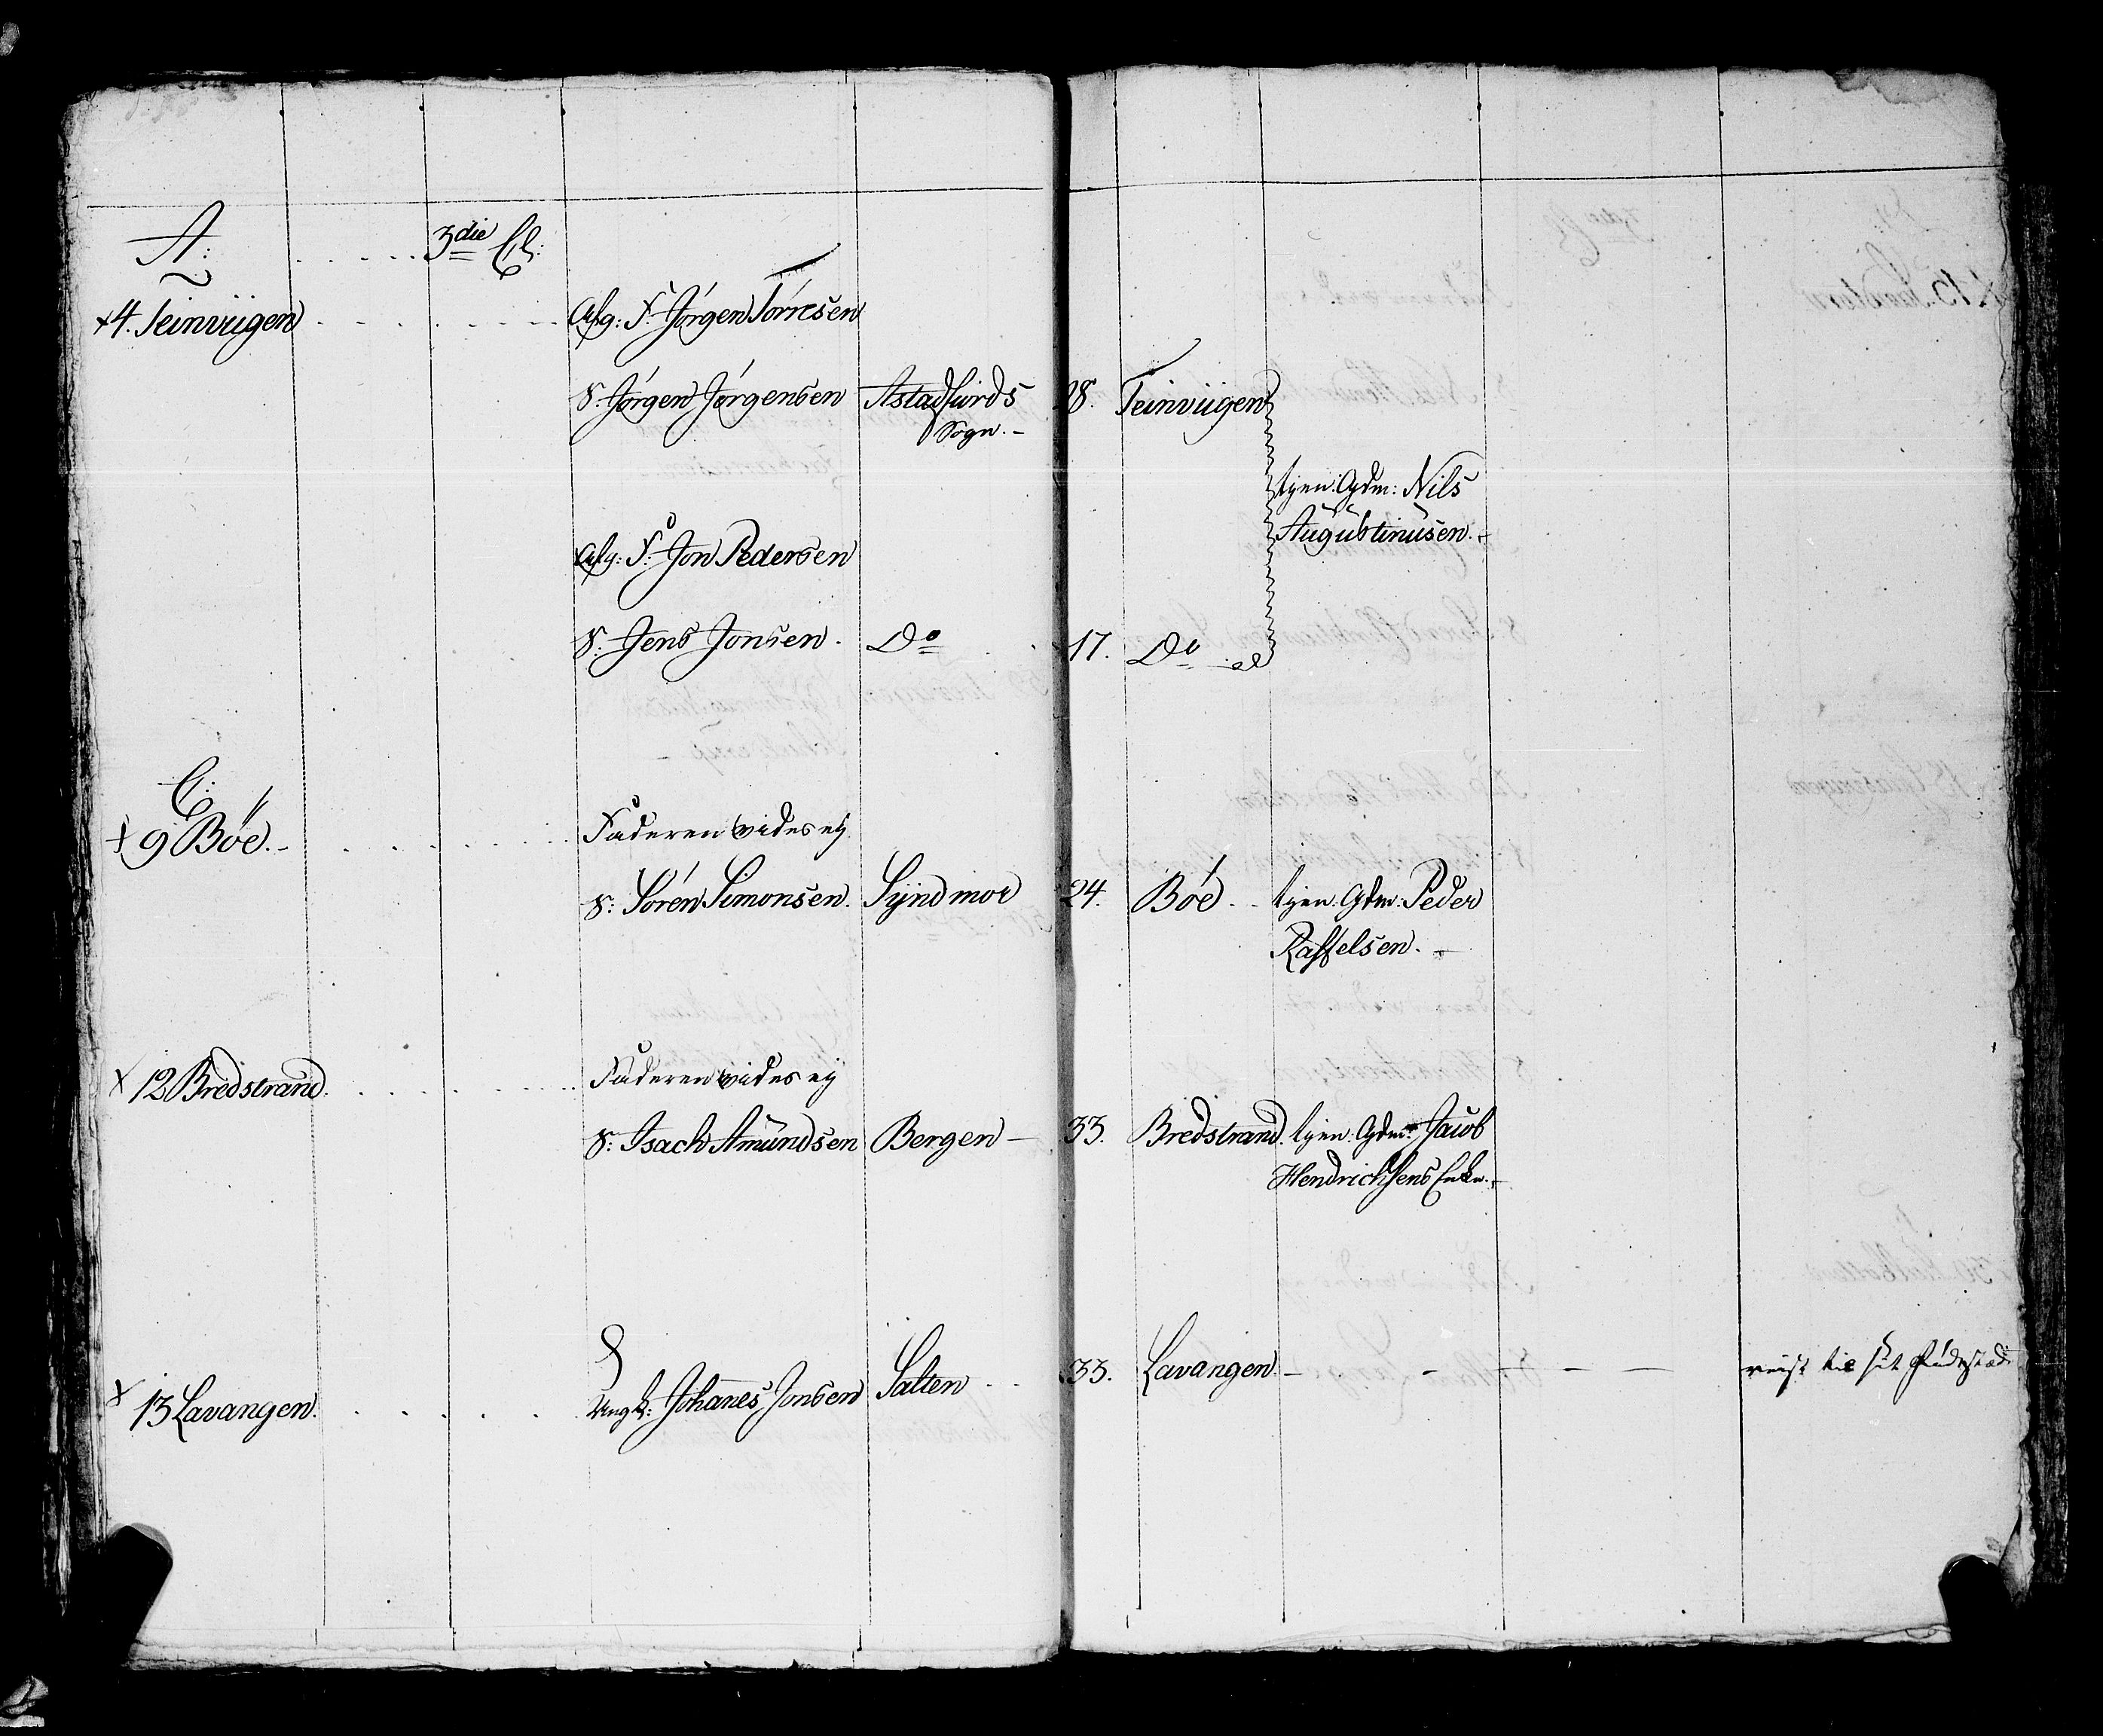 A: . . . . . 3die Cl:
x 4. Teinviigen . . . . . . Afg: F: Jørgen Torresen
S: Jørgen Jørgensen Astadfiords 28. Teinviigen
Sogn. -
tien: Gdm: Nils
Augustinusen. -
Afg: F: Jon Pedersen
S: Jens Jonsen. Do 17. Do
C:
x 9 Bøe. - . . . . . . Faderen vides ey
S: Søren Simonsen. Syndmor 24. Bøe. . tien: Gdm: Peder
Raffelsen. -
x 12 Bredstrand. . . . . . Faderen vides ey
S: Isach Amundsen Bergen - 33. Bredstrand. tien: Gdm: Jacob
Hendrichsens Enke. -
x 13 Lavangen. . . . . . Ungk: Johanes Jonsen Salten . . 33. Lavangen. - - - - - reist til sit Fødested